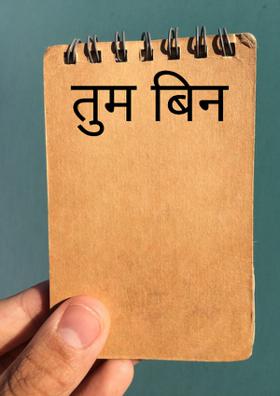 तुम बिन